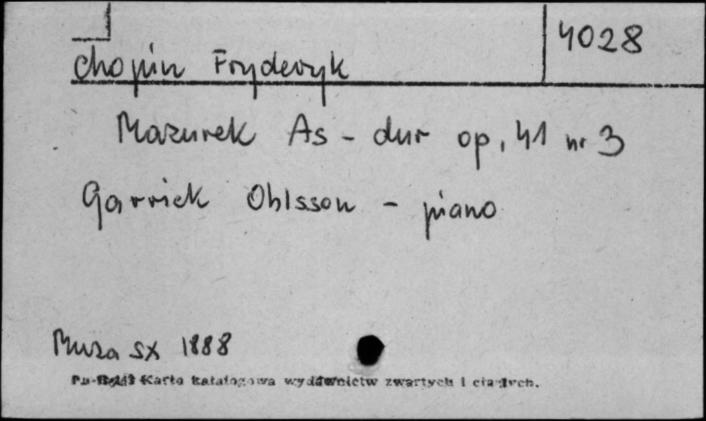 4028
Chopin Fryderyk
Mazurek As-dur op. 41 nr 3
Garrick Ohlsson - piano
Muza SX 1888
Karta katalogowa wydawnictw zwartych i ciągłych.